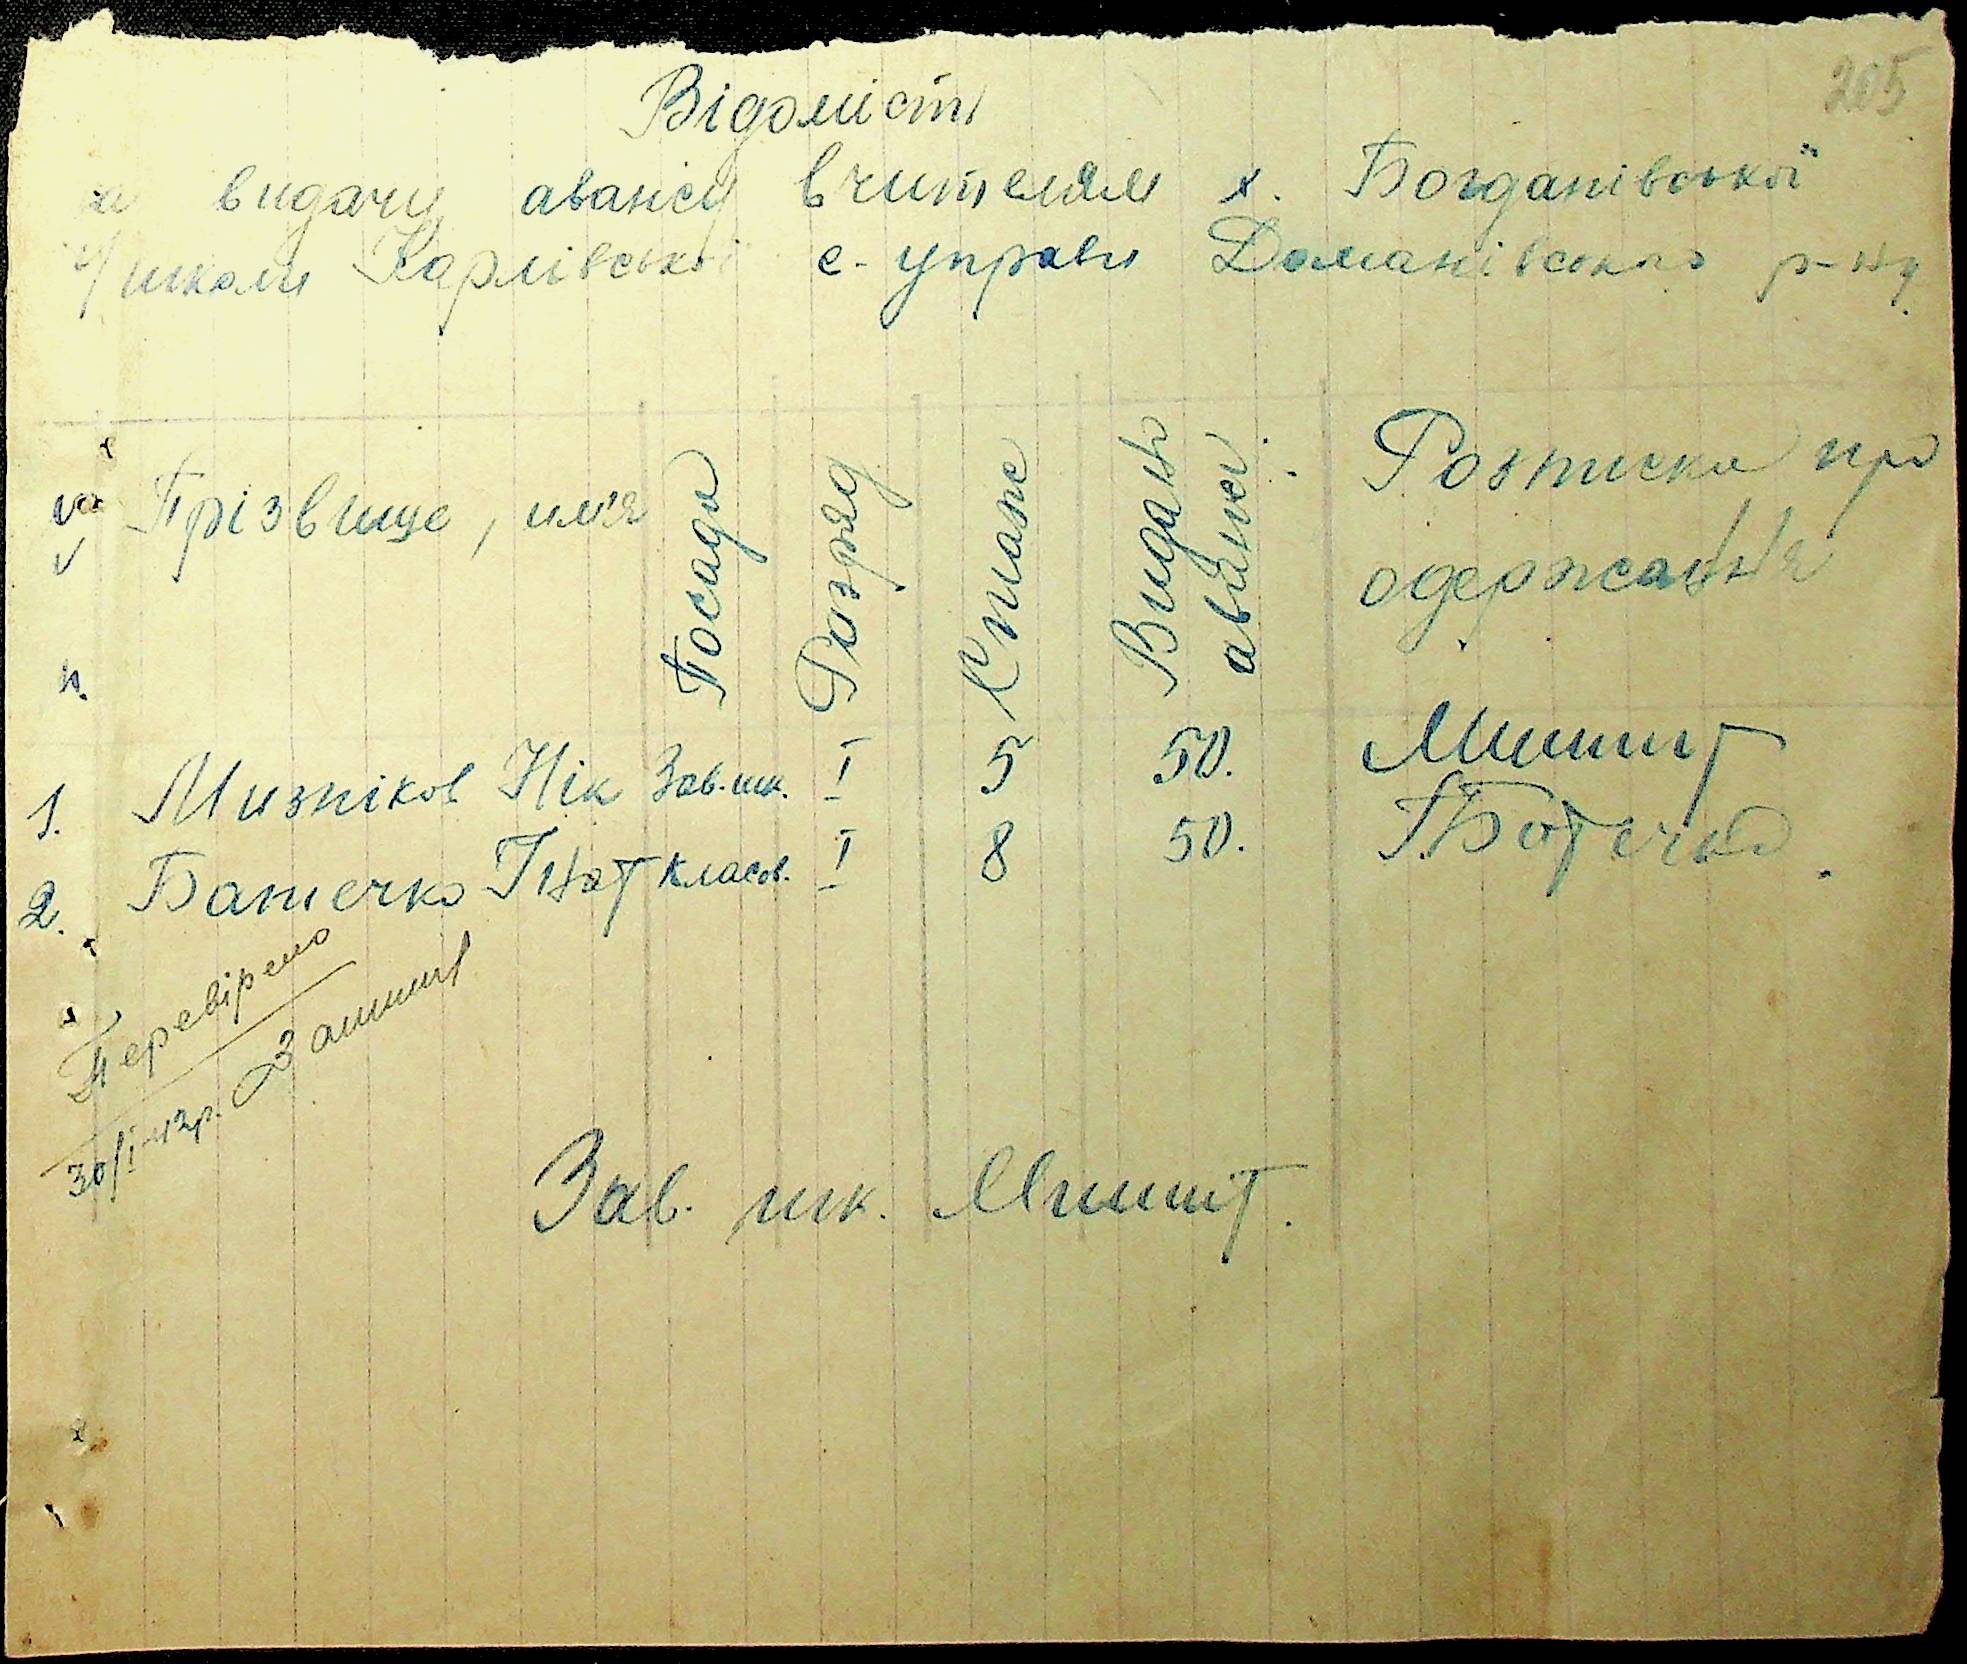 205
Відомість
на видачу авансу вчителям х. Богданівської
п/школи Карлівської с-управи Доманівського р-ну
Прізвище, им'я
Посада
Розряд
Стаж
Видано
авансу
Розписка про
одержання
1. Мизніков Нік Зав.шк. I 5 50.
2. Батечко Ігнат класов. I 8 50. Батечко
Перевірено
30/I-43р.
Зав. шк.